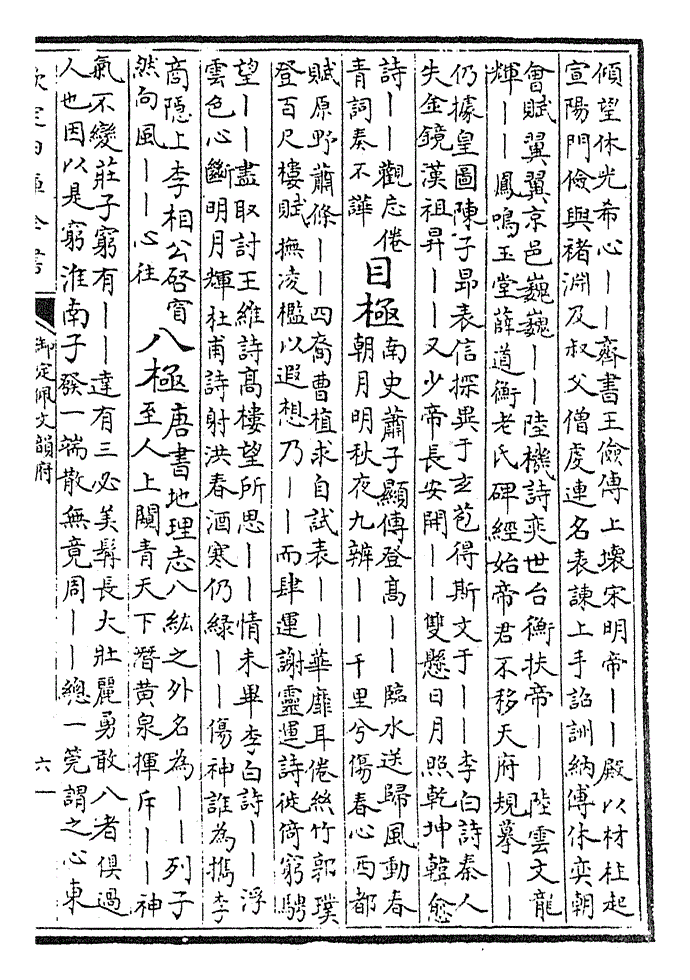 傾望休光希心——齊書王儉傳上壞宋明帝——殿以材柱起
宣陽門儉與褚淵及叔父僧虔連名表諫上手詔訓納傅休奕朝
會賦翼翼京邑巍巍——陸機詩奕世台衡扶帝——陸雲文龍
輝——鳳鳴玉堂薛道衡老氏碑經始帝君不移天府規摹——
仍據皇圖陳子昂表信探異于玄苞得斯文于——李白詩秦人
失金鏡漢祖昇——又少帝長安開——雙懸日月照乾坤韓愈
詩——觀忘倦
青詞奏不譁
目極
南史蕭子顯傳登高——臨水送歸風動春
朝月明秋夜九辨——千里兮傷春心西都
賦原野蕭條——四裔曹植求自試表——華靡耳倦絲竹郭璞
登百尺樓賦撫凌檻以遐想乃——而肆運謝靈運詩徙倚窮騁
望——盡取討王維詩高樓望所思——情未畢李白詩——浮
雲色心斷明月輝杜甫詩射洪春酒寒仍綠——傷神誰為攜李
商隱上李相公啓賓
然向風——心往
八極
唐書地理志八紘之外名為——列子
至人上闚青天下潛黃泉揮斥——神
氣不變莊子窮有——達有三必美髯長大壯麗勇敢八者俱過
人也因以是窮淮南子發一端散無竟周——總一筦謂之心東
欽定四庫全書
御定佩文韻府
六一